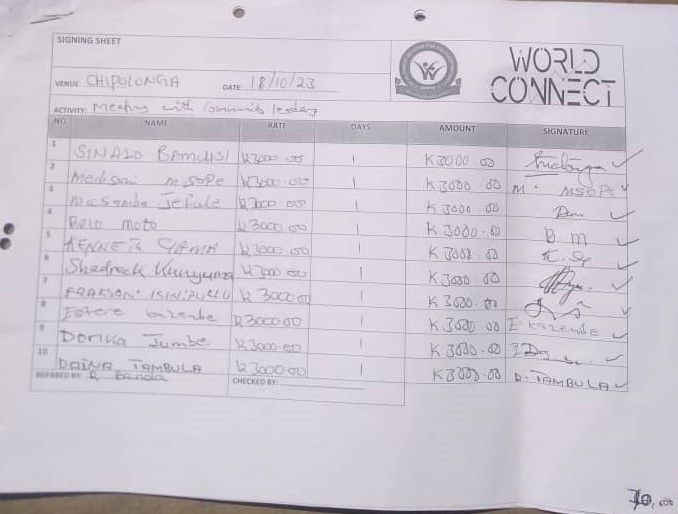 SIGNING SHEET
WORLD
CONNECT
VENUE: CHIPOLONGA DATE: 18/10/23
ACTIVITY: Meeting with Community leaders
NO NAME RATE DAYS AMOUNT SIGNATURE
1 SINALO BAMUSI K3000.00 1 K3000.00
2 Medson MSOPE K3000.00 1 K3000.00 M. MSOPE
3 Masamba Jefule K3000.00 1 K3000.00
4 Belo moto K3000.00 1 K3000.00 B M
5 KENNETH K3000.00 1 K3000.00
6 Shadreck Kunyunza K3000.00 1 K3000.00
7 K3000.00 1 K3000.00
8 Estere Kazembe K3000.00 1 K3000.00 E Kazembe
9 Dorika Jumbe K3000.00 1 K3000.00
10 DAINA TAMBULA K3000.00 1 K3000.00 D. TAMBULA
REPARED BY: R Banda CHECKED BY: